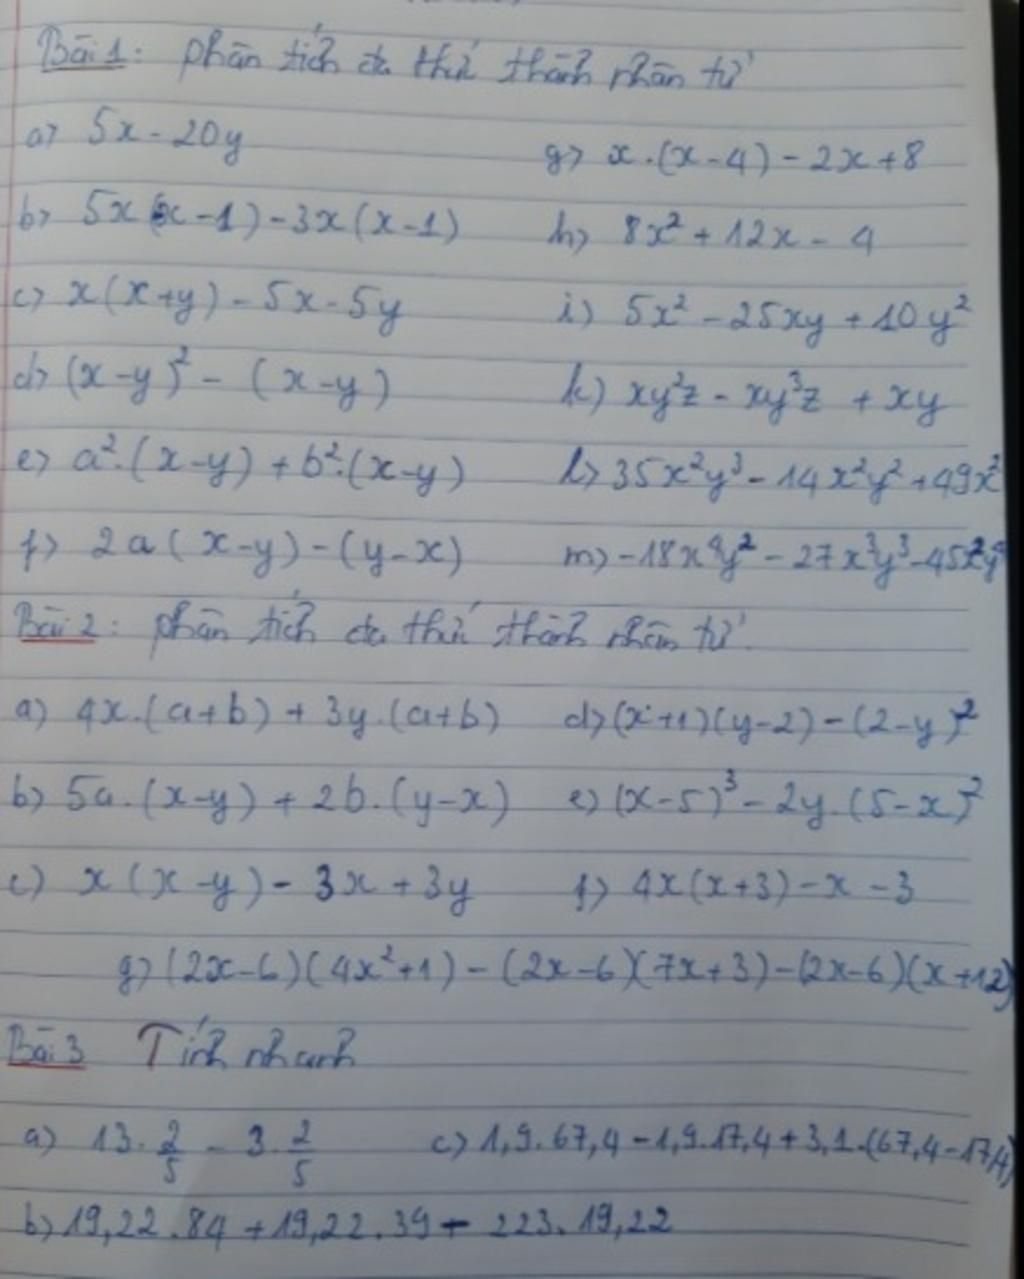 Bài 1: phân tích đa thức thành nhân tử
a) 5x - 20y
g) x.(x-4) - 2x + 8
b) 5x(x-1) - 3x(x-1)
h) 8x² + 12x - 4
c) x(x+y) - 5x - 5y
i) 5x² - 25xy + 10y²
d) (x-y)² - (x-y)
k) xy²z - xy³z + xy
e) a².(x-y) + b².(x-y)
l) 35x²y³ - 14x²y² + 49x²
f) 2a(x-y) - (y-x)
m) -18x⁴y² - 27x³y³ - 45x²y
Bài 2: phân tích đa thức thành nhân tử.
a) 4x.(a+b) + 3y.(a+b)
d) (x+1)(y-2) - (2-y)²
b) 5a.(x-y) + 2b.(y-x)
e) (x-5)³ - 2y.(5-x)²
c) x(x-y) - 3x + 3y
f) 4x(x+3) - x - 3
g) (2x-6)(4x²+1) - (2x-6)(7x+3) - (2x-6)(x+12)
Bài 3 Tính nhanh
a) 13.2/5 - 3.2/5
c) 1,9.67,4 - 1,9.17,4 + 3,1.(67,4-17,4)
b) 19,22.84 + 19,22.39 - 223.19,22